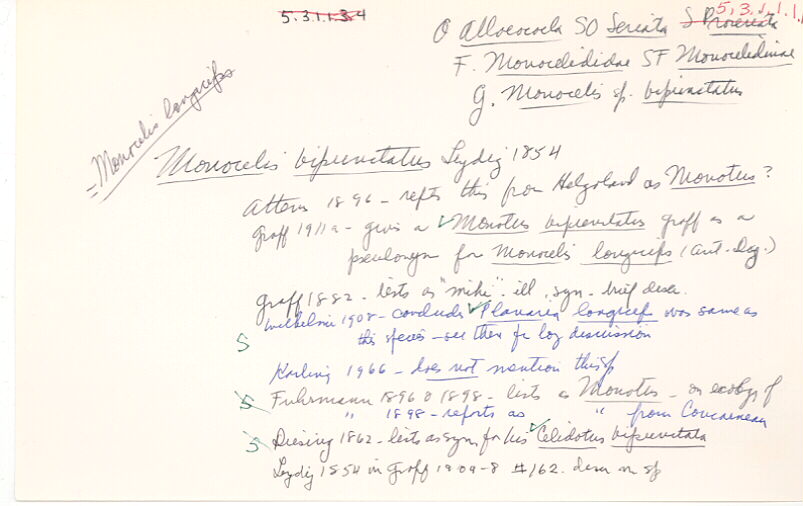 5.3.1.1.3.4
5.3.1.1.1.
O Alloeocoela SO Seriata S Proseriata
F. Monocelididae SF Monocelidinae
G. Monocelis sp. bipunctatus
= Monocelis longiceps
Monocelis bipunctatus Leydig 1854
Attems 1896 - repts this from Helgoland as Monotus?
Graff 1911a - gives a Monotus bipunctatus Graff as a
pseudonym for Monocelis longiceps (Ant. Dug.)
Graff 1882 - lists as "mihi" ill, syn - brief descr.
Wilhelmi 1908 - concludes Planaria longiceps was same as
this species - see then for long discussion
S
Karling 1966 - does not mention this sp
S Fuhrmann 1896 & 1898 - lists as Monotus - on ecology of
" 1898 - reports as " from Concarneau
S Diesing 1862 - lists as syn for his Celidotus bipunctata
Leydig 1854 in Graff 1909-8 #162. descr n sp